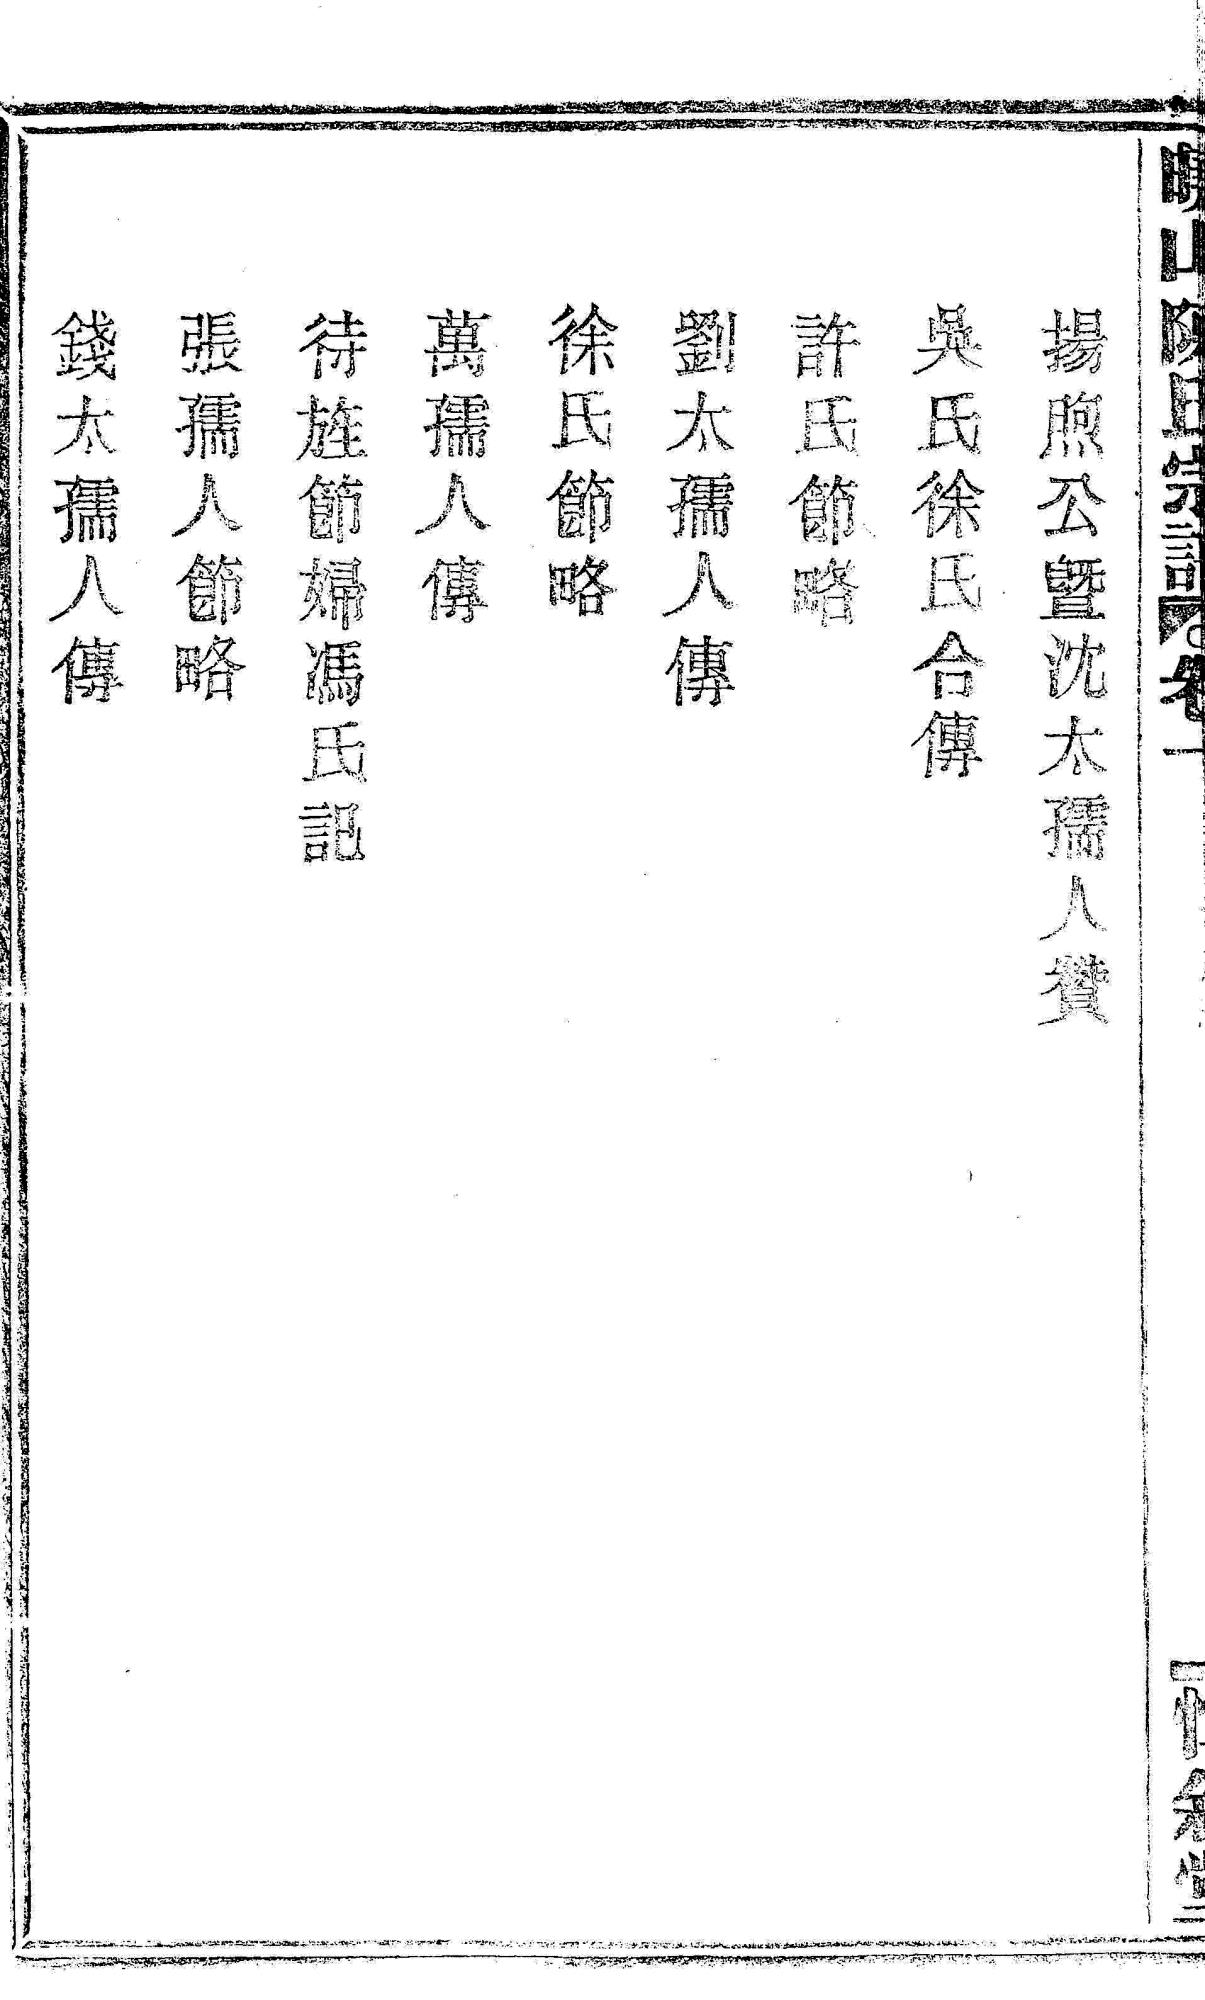 山陳氏宗譜 卷一
揚煦公暨沈太孺人贊
吳氏徐氏合傳
許氏節略
劉太孺人傳
徐氏節略
萬孺人傳
待旌節婦馮氏記
張孺人節略
錢太孺人傳